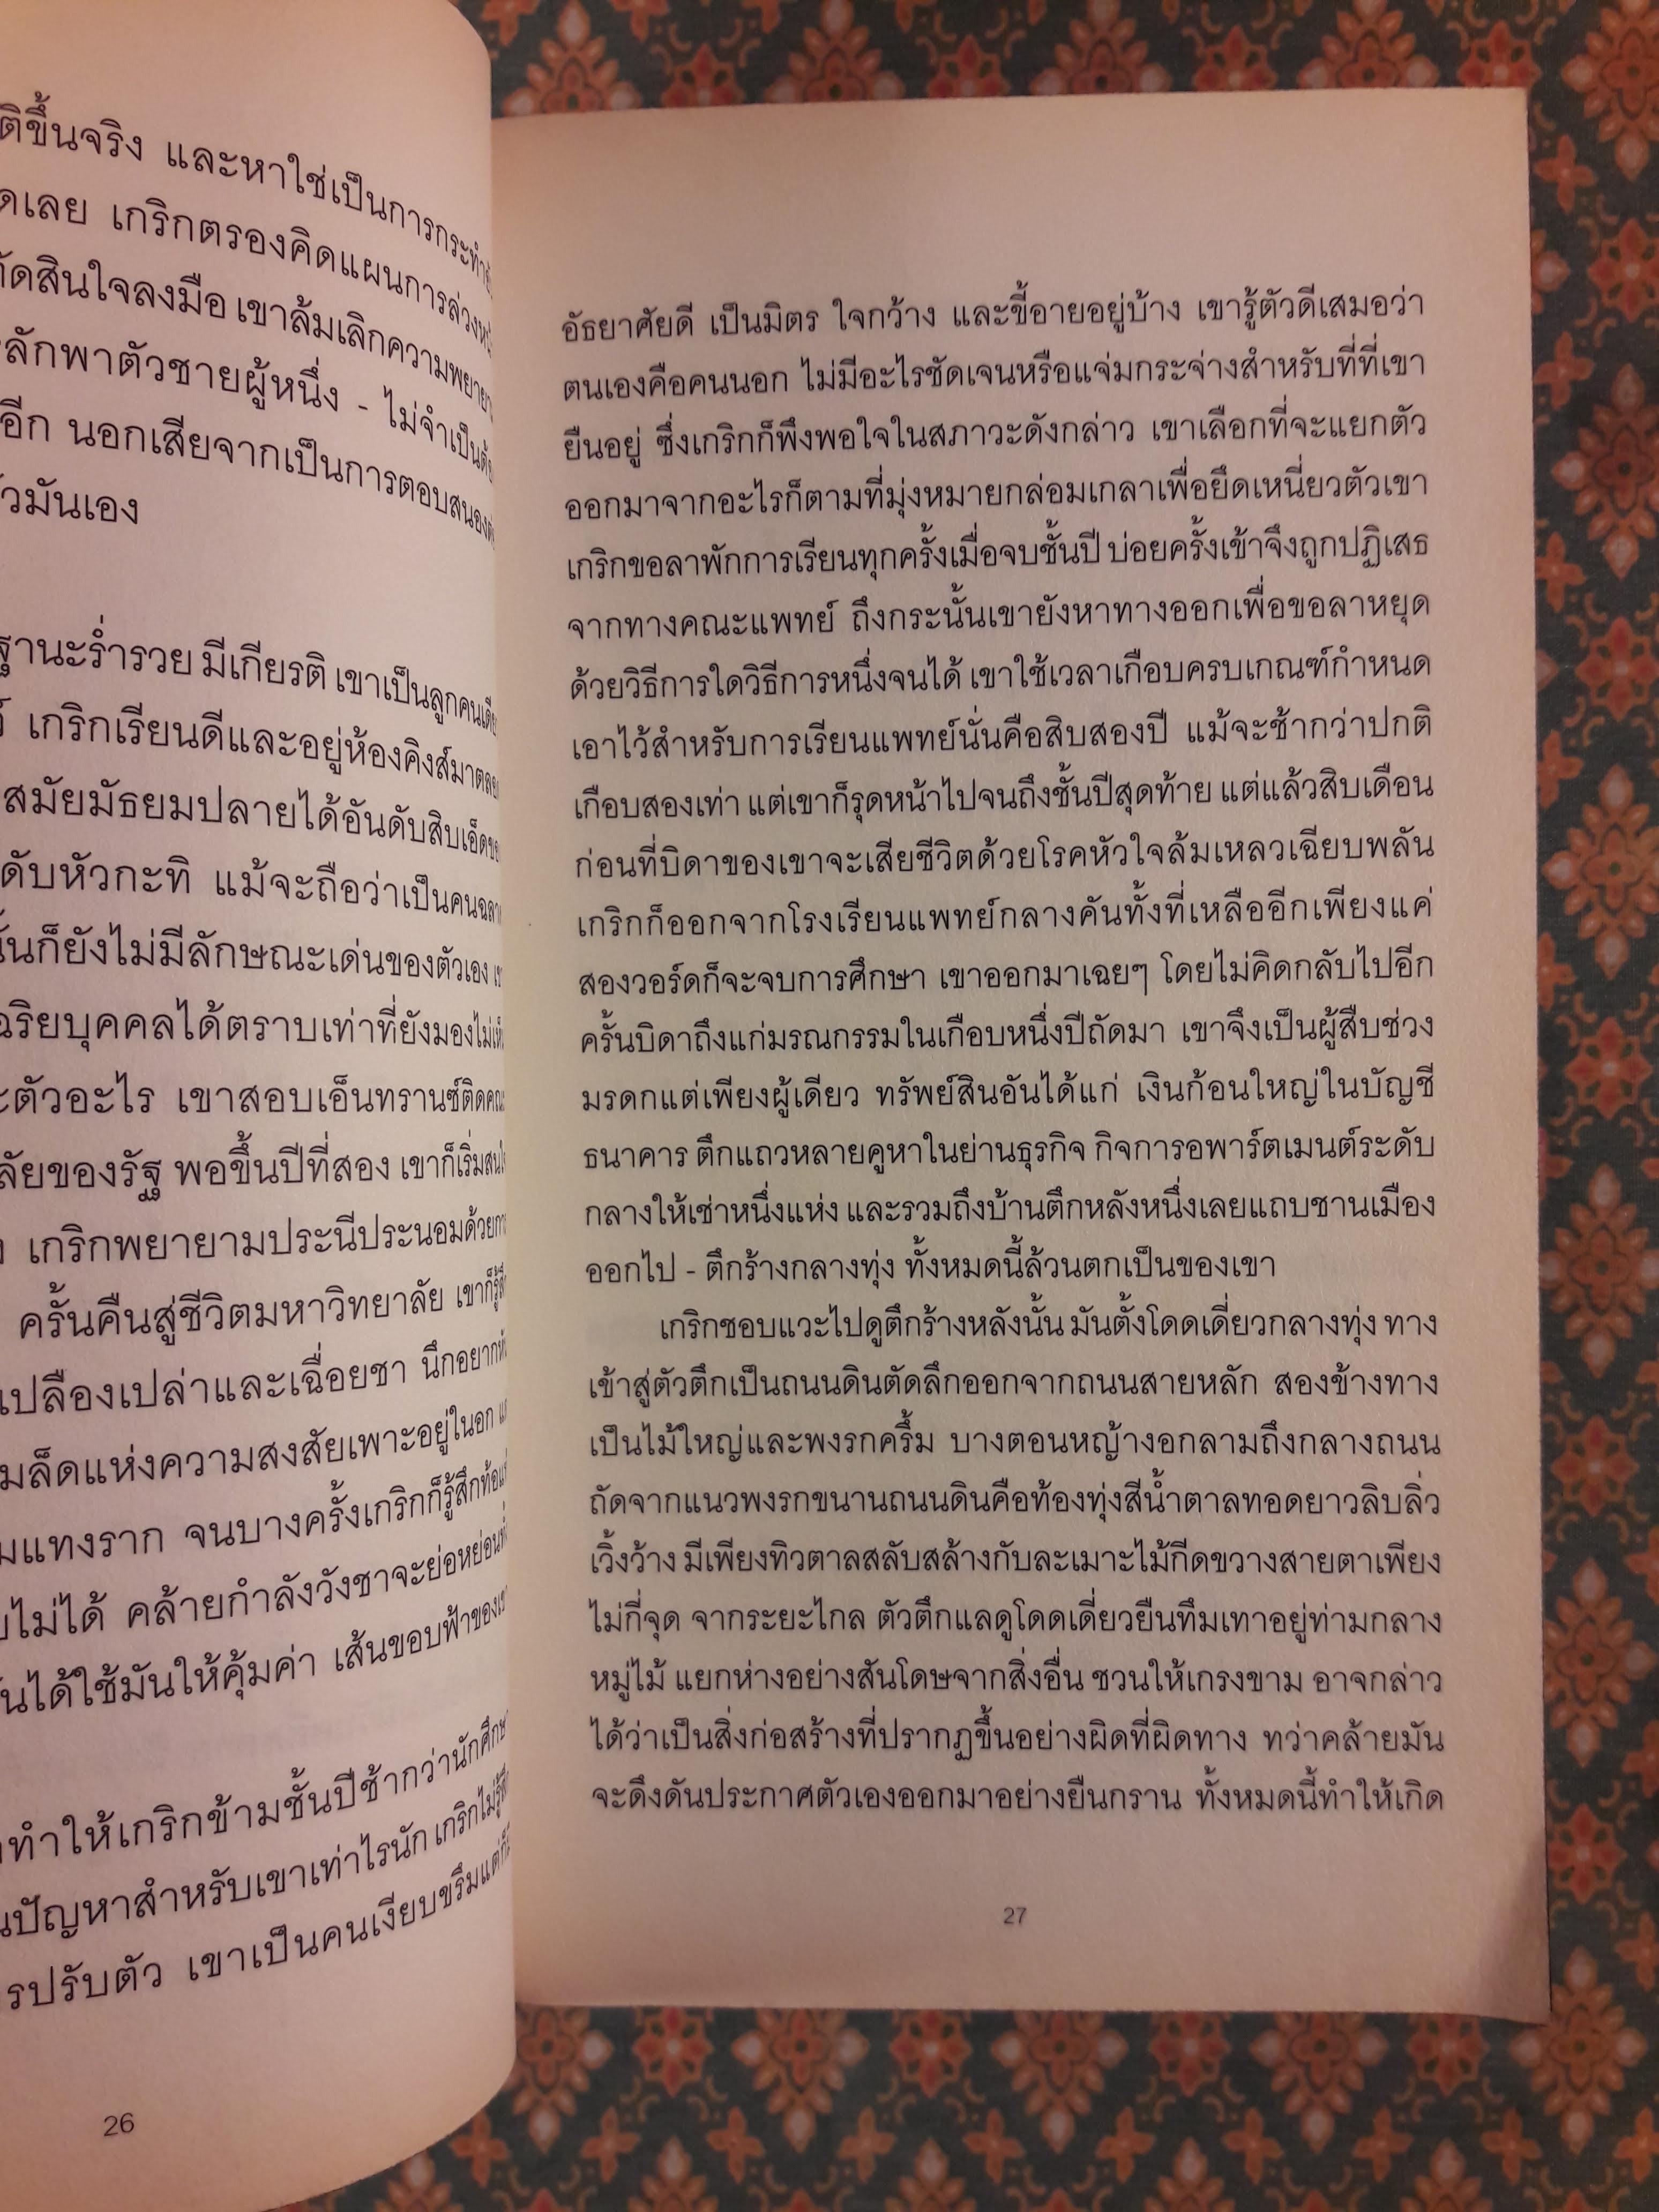 ติขึ้นจริง และหาใช่เป็นการกระทำ
ดเลย เกริกตรองคิดแผนการล่วงหน้
ตัดสินใจลงมือ เขาล้มเลิกความพยายา
ลักพาตัวชายผู้หนึ่ง - ไม่จำเป็นต้อ
อีก นอกเสียจากเป็นการตอบสนอง
วมันเอง
ฐานะร่ำรวย มีเกียรติ เขาเป็นลูกคนเดีย
เกริกเรียนดีและอยู่ห้องคิงส์มาตลอ
สมัยมัธยมปลายได้อันดับสิบเอ็ดขอ
ดับหัวกะทิ แม้จะถือว่าเป็นคนฉลา
นก็ยังไม่มีลักษณะเด่นของตัวเอง
ฉริยบุคคลได้ตราบเท่าที่ยังมองไม่เห็
ะตัวอะไร เขาสอบเอ็นทรานซ์ติดคณ
ลัยของรัฐ พอขึ้นปีที่สอง เขาก็เริ่มสน
เกริกพยายามประนีประนอมด้วยกา
ครั้นคืนสู่ชีวิตมหาวิทยาลัย เขาก็รู้สึ
เปลืองเปล่าและเฉื่อยชา นึกอยาก
มล็ดแห่งความสงสัยเพาะอยู่ในอก
มแทงราก จนบางครั้งเกริกก็รู้สึกท้อแ
ไม่ได้ คล้ายกำลังวังชาจะย่อหย่อน
นได้ใช้มันให้คุ้มค่า เส้นขอบฟ้าของเ
ทำให้เกริกข้ามชั้นปีช้ากว่านักศึกษ
นปัญหาสำหรับเขาเท่าไรนัก เกริกไม่รู้สึ
รปรับตัว เขาเป็นคนเงียบขรึมแต่ก็
26
อัธยาศัยดี เป็นมิตร ใจกว้าง และขี้อายอยู่บ้าง เขารู้ตัวดีเสมอว่า
ตนเองคือคนนอก ไม่มีอะไรชัดเจนหรือแจ่มกระจ่างสำหรับที่ที่เขา
ยืนอยู่ ซึ่งเกริกก็พึงพอใจในสภาวะดังกล่าว เขาเลือกที่จะแยกตัว
ออกมาจากอะไรก็ตามที่มุ่งหมายกล่อมเกลาเพื่อยึดเหนี่ยวตัวเขา
เกริกขอลาพักการเรียนทุกครั้งเมื่อจบชั้นปี บ่อยครั้งเข้าจึงถูกปฏิเสธ
จากทางคณะแพทย์ ถึงกระนั้นเขายังหาทางออกเพื่อขอลาหยุด
ด้วยวิธีการใดวิธีการหนึ่งจนได้ เขาใช้เวลาเกือบครบเกณฑ์กำหนด
เอาไว้สำหรับการเรียนแพทย์นั่นคือสิบสองปี แม้จะช้ากว่าปกติ
เกือบสองเท่า แต่เขาก็รุดหน้าไปจนถึงชั้นปีสุดท้าย แต่แล้วสิบเดือน
ก่อนที่บิดาของเขาจะเสียชีวิตด้วยโรคหัวใจล้มเหลวเฉียบพลัน
เกริกก็ออกจากโรงเรียนแพทย์กลางคันทั้งที่เหลืออีกเพียงแค่
สองวอร์ดก็จะจบการศึกษา เขาออกมาเฉยๆ โดยไม่คิดกลับไปอีก
ครั้นบิดาถึงแก่มรณกรรมในเกือบหนึ่งปีถัดมา เขาจึงเป็นผู้สืบช่วง
มรดกแต่เพียงผู้เดียว ทรัพย์สินอันได้แก่ เงินก้อนใหญ่ในบัญชี
ธนาคาร ตึกแถวหลายคูหาในย่านธุรกิจ กิจการอพาร์ตเมนต์ระดับ
กลางให้เช่าหนึ่งแห่ง และรวมถึงบ้านตึกหลังหนึ่งเลยแถบชานเมือง
ออกไป - ตึกร้างกลางทุ่ง ทั้งหมดนี้ล้วนตกเป็นของเขา
เกริกชอบแวะไปดูตึกร้างหลังนั้น มันตั้งโดดเดี่ยวกลางทุ่ง ทาง
เข้าสู่ตัวตึกเป็นถนนดินตัดลึกออกจากถนนสายหลัก สองข้างทาง
เป็นไม้ใหญ่และพงรกครึ้ม บางตอนหญ้างอกลามถึงกลางถนน
ถัดจากแนวพงรกขนานถนนดินคือท้องทุ่งสีน้ำตาลทอดยาวลิบลิ่ว
เวิ้งว้าง มีเพียงทิวตาลสลับสล้างกับละเมาะไม้กีดขวางสายตาเพียง
ไม่กี่จุด จากระยะไกล ตัวตึกแลดูโดดเดี่ยวยืนทึมเทาอยู่ท่ามกลาง
หมู่ไม้ แยกห่างอย่างสันโดษจากสิ่งอื่น ชวนให้เกรงขาม อาจกล่าว
ได้ว่าเป็นสิ่งก่อสร้างที่ปรากฏขึ้นอย่างผิดที่ผิดทาง ทว่าคล้ายมัน
จะดึงดันประกาศตัวเองออกมาอย่างยืนกราน ทั้งหมดนี้ทำให้เกิด
27